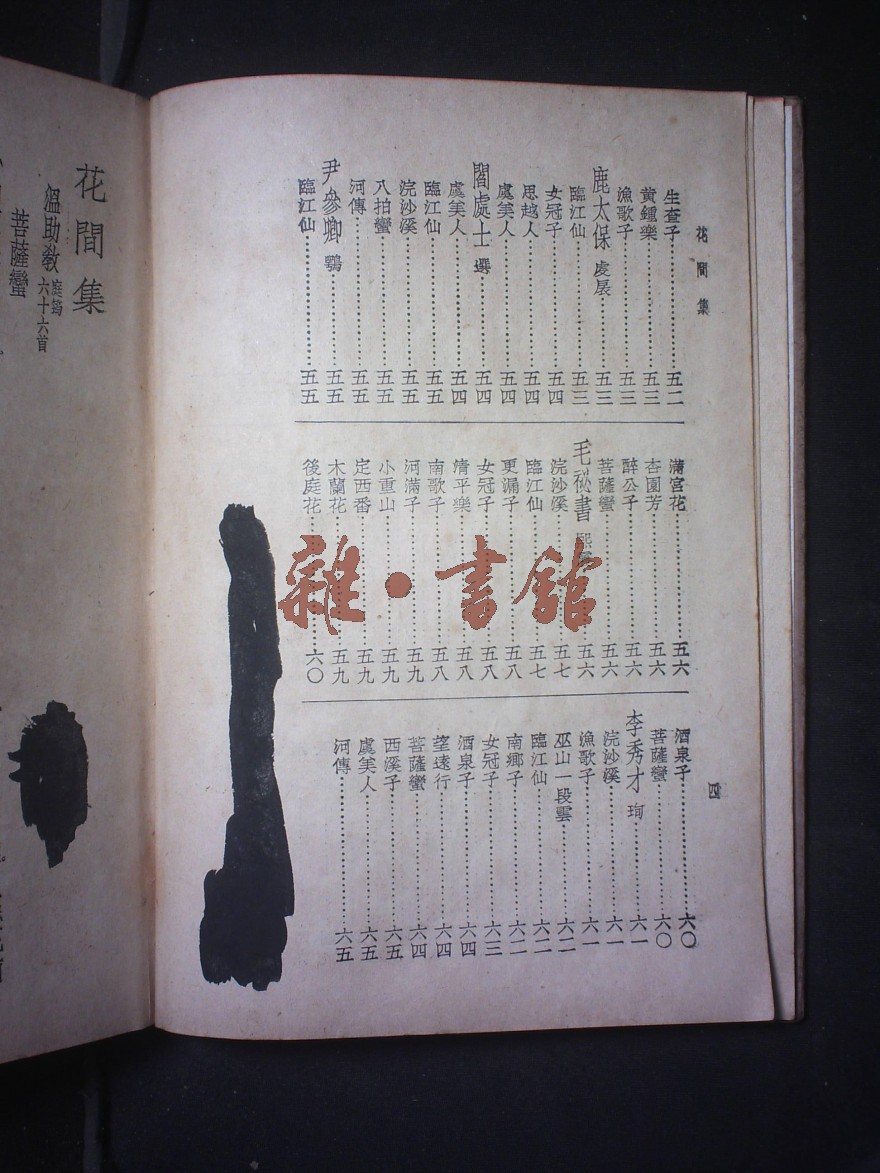 花間集
生查子……五二
黃鍾樂……五三
漁歌子……五三
鹿太保 虔扆……五三
臨江仙……五三
女冠子……五四
思越人……五四
虞美人……五四
閻處士 選……五四
虞美人……五四
臨江仙……五五
浣沙溪……五五
八拍蠻……五五
河傳……五五
尹參卿 鶚……五五
臨江仙……五五
滿宮花……五六
杏園芳……五六
醉公子……五六
菩薩蠻……五六
毛祕書 熙……五六
浣沙溪……五七
臨江仙……五七
更漏子……五八
女冠子……五八
清平樂……五八
南歌子……五八
河滿子……五九
小重山……五九
定西番……五九
木蘭花……五九
後庭花……六〇
酒泉子……六〇
菩薩蠻……六〇
李秀才 珣……六一
浣沙溪……六一
漁歌子……六一
巫山一段雲……六二
臨江仙……六二
南鄉子……六二
女冠子……六三
酒泉子……六四
望遠行……六四
菩薩蠻……六四
西溪子……六五
虞美人……六五
河傳……六五
四
花間集
溫助教 庭筠 六十六首
菩薩蠻
雜·書館